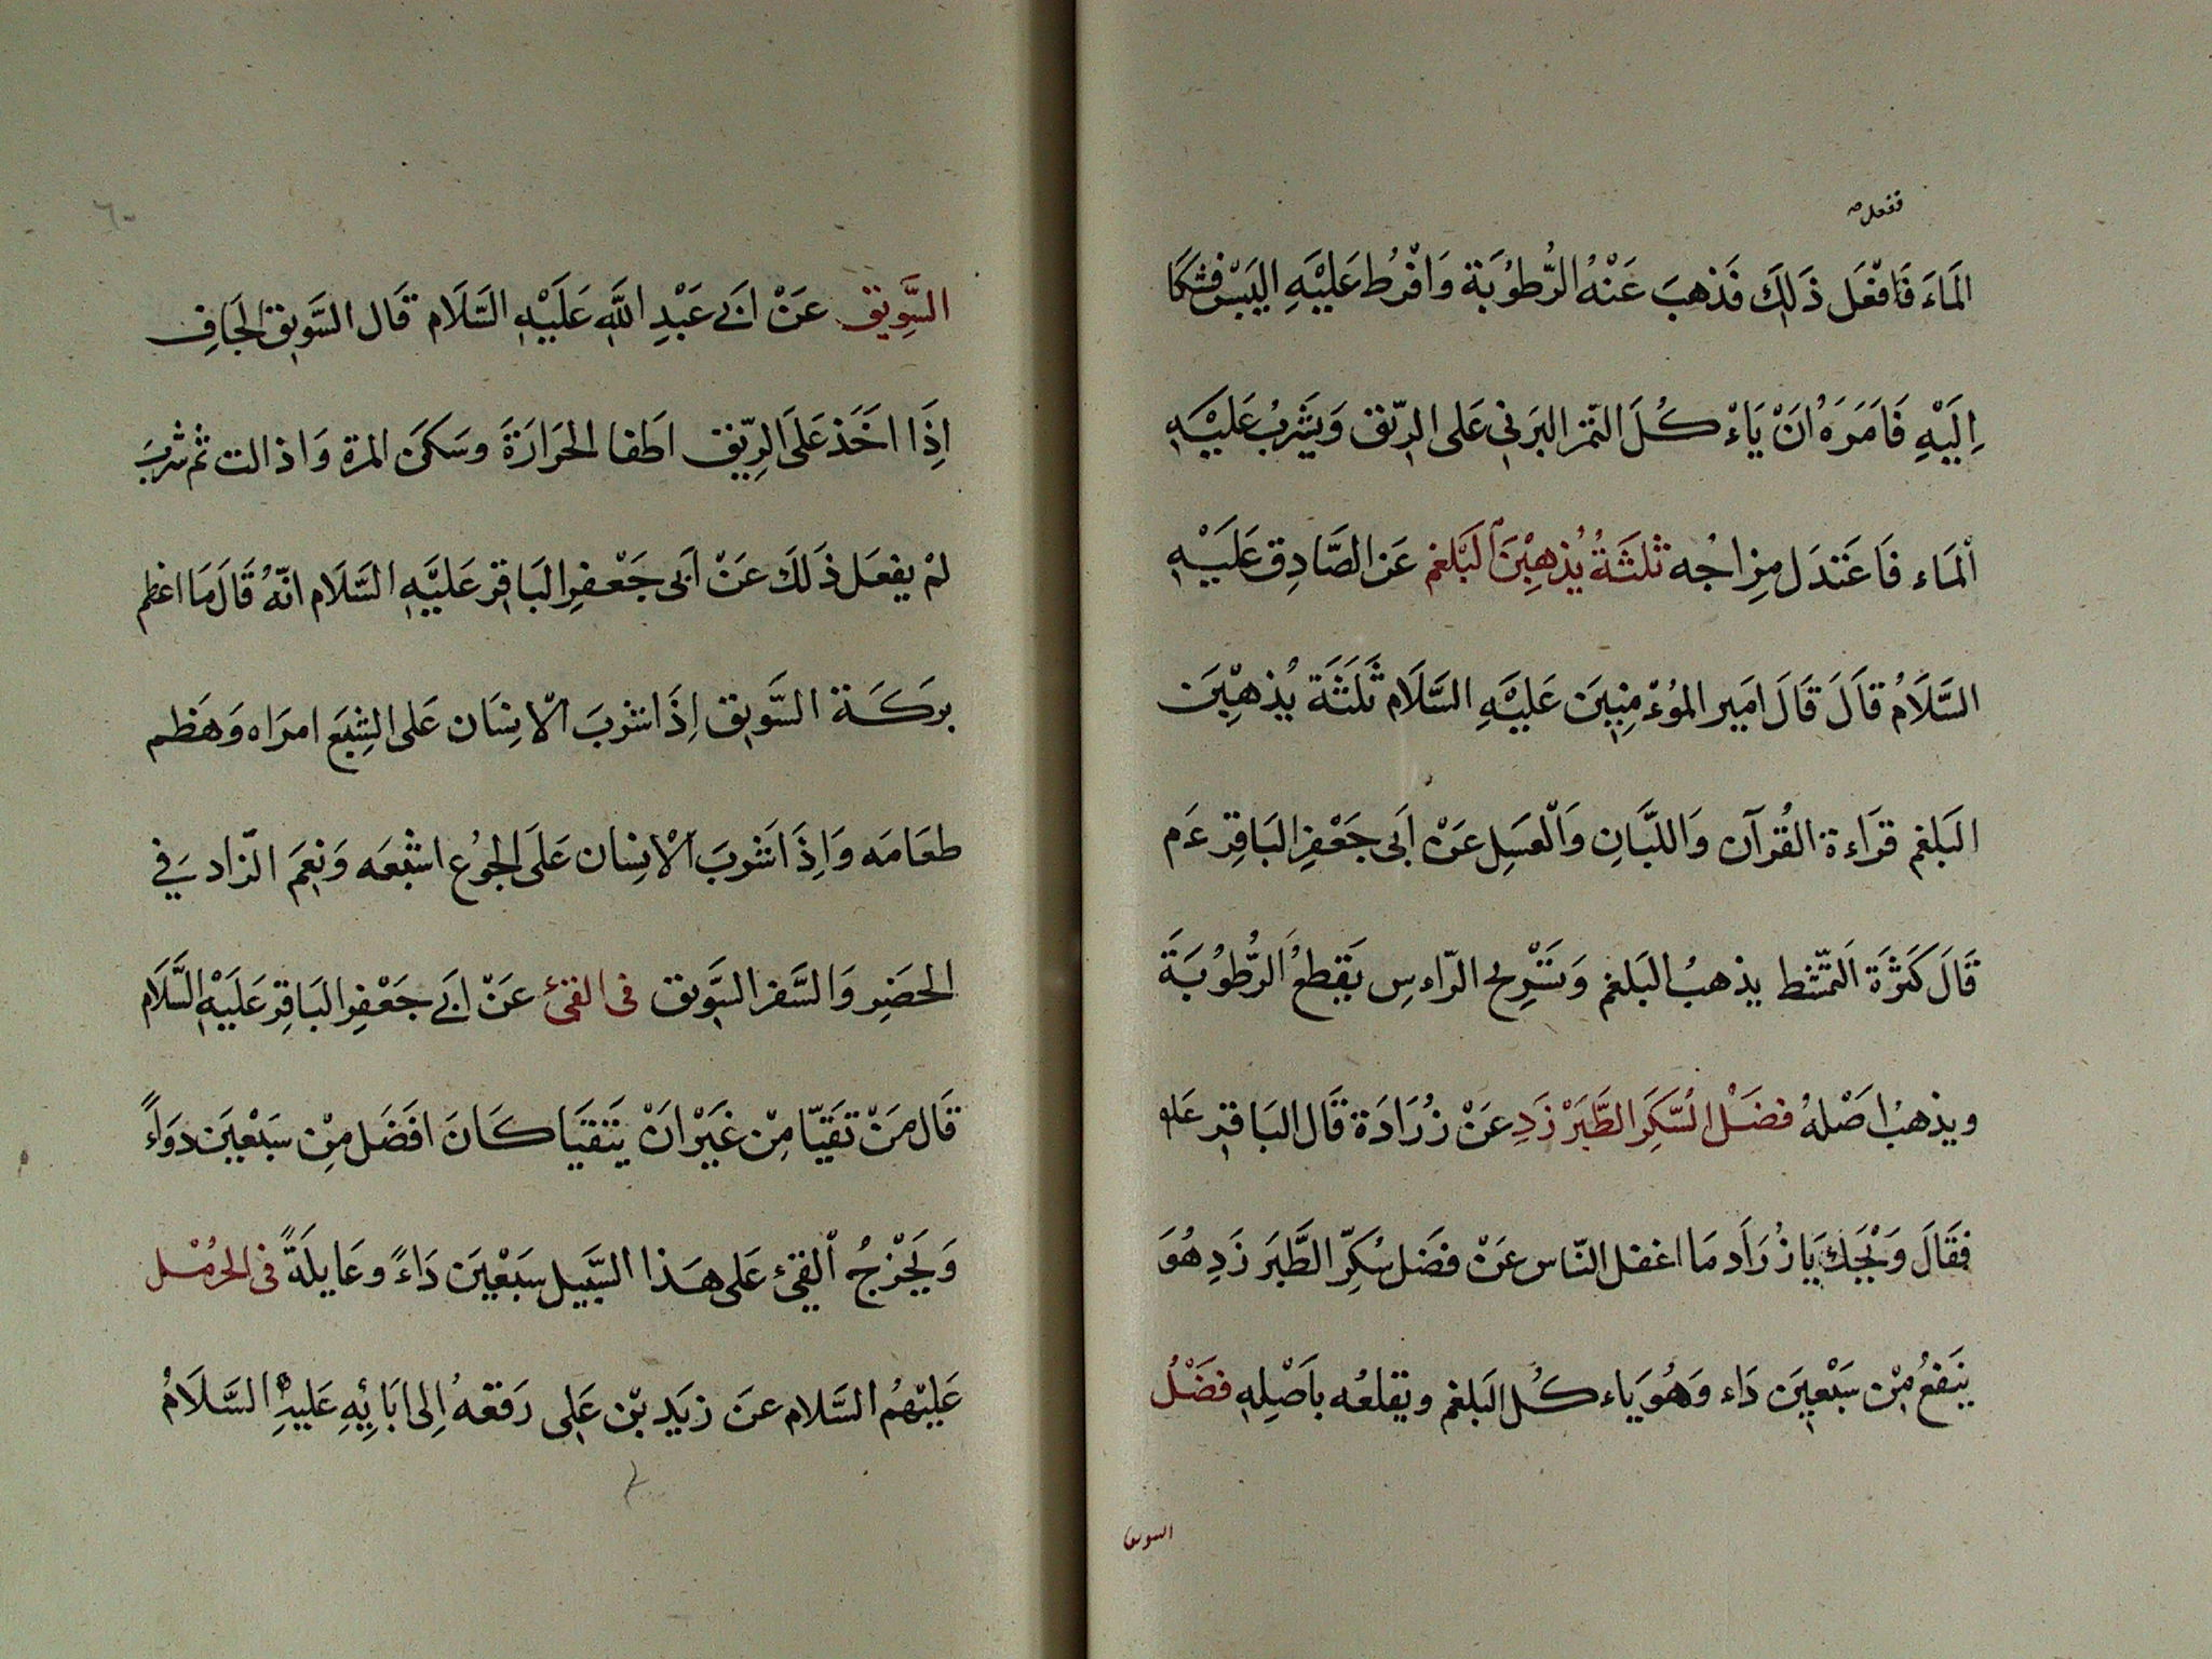 ففعل صـ
الَمَاءَ فَافْعَل ذَلِكَ فَذهبَ عَنْهُ الرُّطُوْبَة وَافْرُط عَليْهِ اليَبْس فشكَا
اِلَيْهِ فَامَرَهُ انَْ يَاءْكُلَ التَمْر البَرنِي عَلى الرِيّق وَيَشْربُ عَليْهِ
اَلْمَاء فَاعَتَدَل مِزاجُه ثَلثَةُ يُذهِبْنَ البَلْغم عَن الصَّادِق عَلَيْهِ
السَّلَامُ قَالَ قَالَ امَير المُوْءمِنِيَن عَليْهِ السَّلَام ثَلَثَة يُذهِبْنَ
البَلغم قرَاءة القُرآن وَاللبَّانِ وَالْعَسِل عَنْ اَبَى جَعْفِر البَاقِر عَم
قَالَ كَثَرَة التَمّشط يذهبُ البَلغم وَتَسْرِيح الرّاءسِ يَقِطعُ الرُّطُوْبَةَ
ويذهبُ اصَْلهُ فضَْل السَّكَر الطَّبَرْزَدِ عَنْ زُرَارَة قَال البَاقِر عَلم
فقَالَ وَيْحَكَ يَا زُرَاَد مَا اغفل النّاس عَنْ فضَل سُكِرّ الطَّبَرزَدِ هُوَ
يَنَفعُ مِنْ سَبْعِيَن دَاء وَهُوَ يَاءكُل البَلغم ويقلعُه باَصْلِهِ فضَْلُ
السويق
٦٠
السَّوِيق عَنْ ابَي عَبْدِ اللَّهِ عَلَيْهِ السَّلَام قَال السَّوِيق الجَافِ
اِذَا اخَذ عَلَى الرِيّق اطَفا الحَرَارَةَ وسَكَن المرة وَاذا لت ثم شربَ
لمْ يفعَل ذَلَك عَنْ اَبَى جَعْفِر البَاقِر عَليَّهِ السَّلَام انَّهُ قَالَ مَا اعظم
بركَةَ السَّوِيق اِذَا شربَ الْانِسَان عَلى الشِبَع امرَاه وَهَظم
طعَامَه وَاِذَا شربَ الْانِسان عَلَى الجوُع اشْبَعه وَنِعَم الزّاد فِي
الحضَِر وَالسَّفر السَّوِيق فى القئ عَنْ ابَي جَعْفِر البَاقِر عَلَيْهِ السَّلَام
قَال مَنْ تقَيّا مِنْ غَيْر انَْ يَتَقيَا كَانَ افَضَل مِنْ سَبْعيَن دوَاءً
وَيَخْرجُ القيْءُ عَلى هَذا السَّبيل سَبْعْيَن دَاءً وعَايلَةً فى الحرْمل
عَليْهُم السَّلام عنَ زيَد بْن عَلِى رَفَعهُ اِلى ابَائِهِ عَليهِ السَّلَامُ